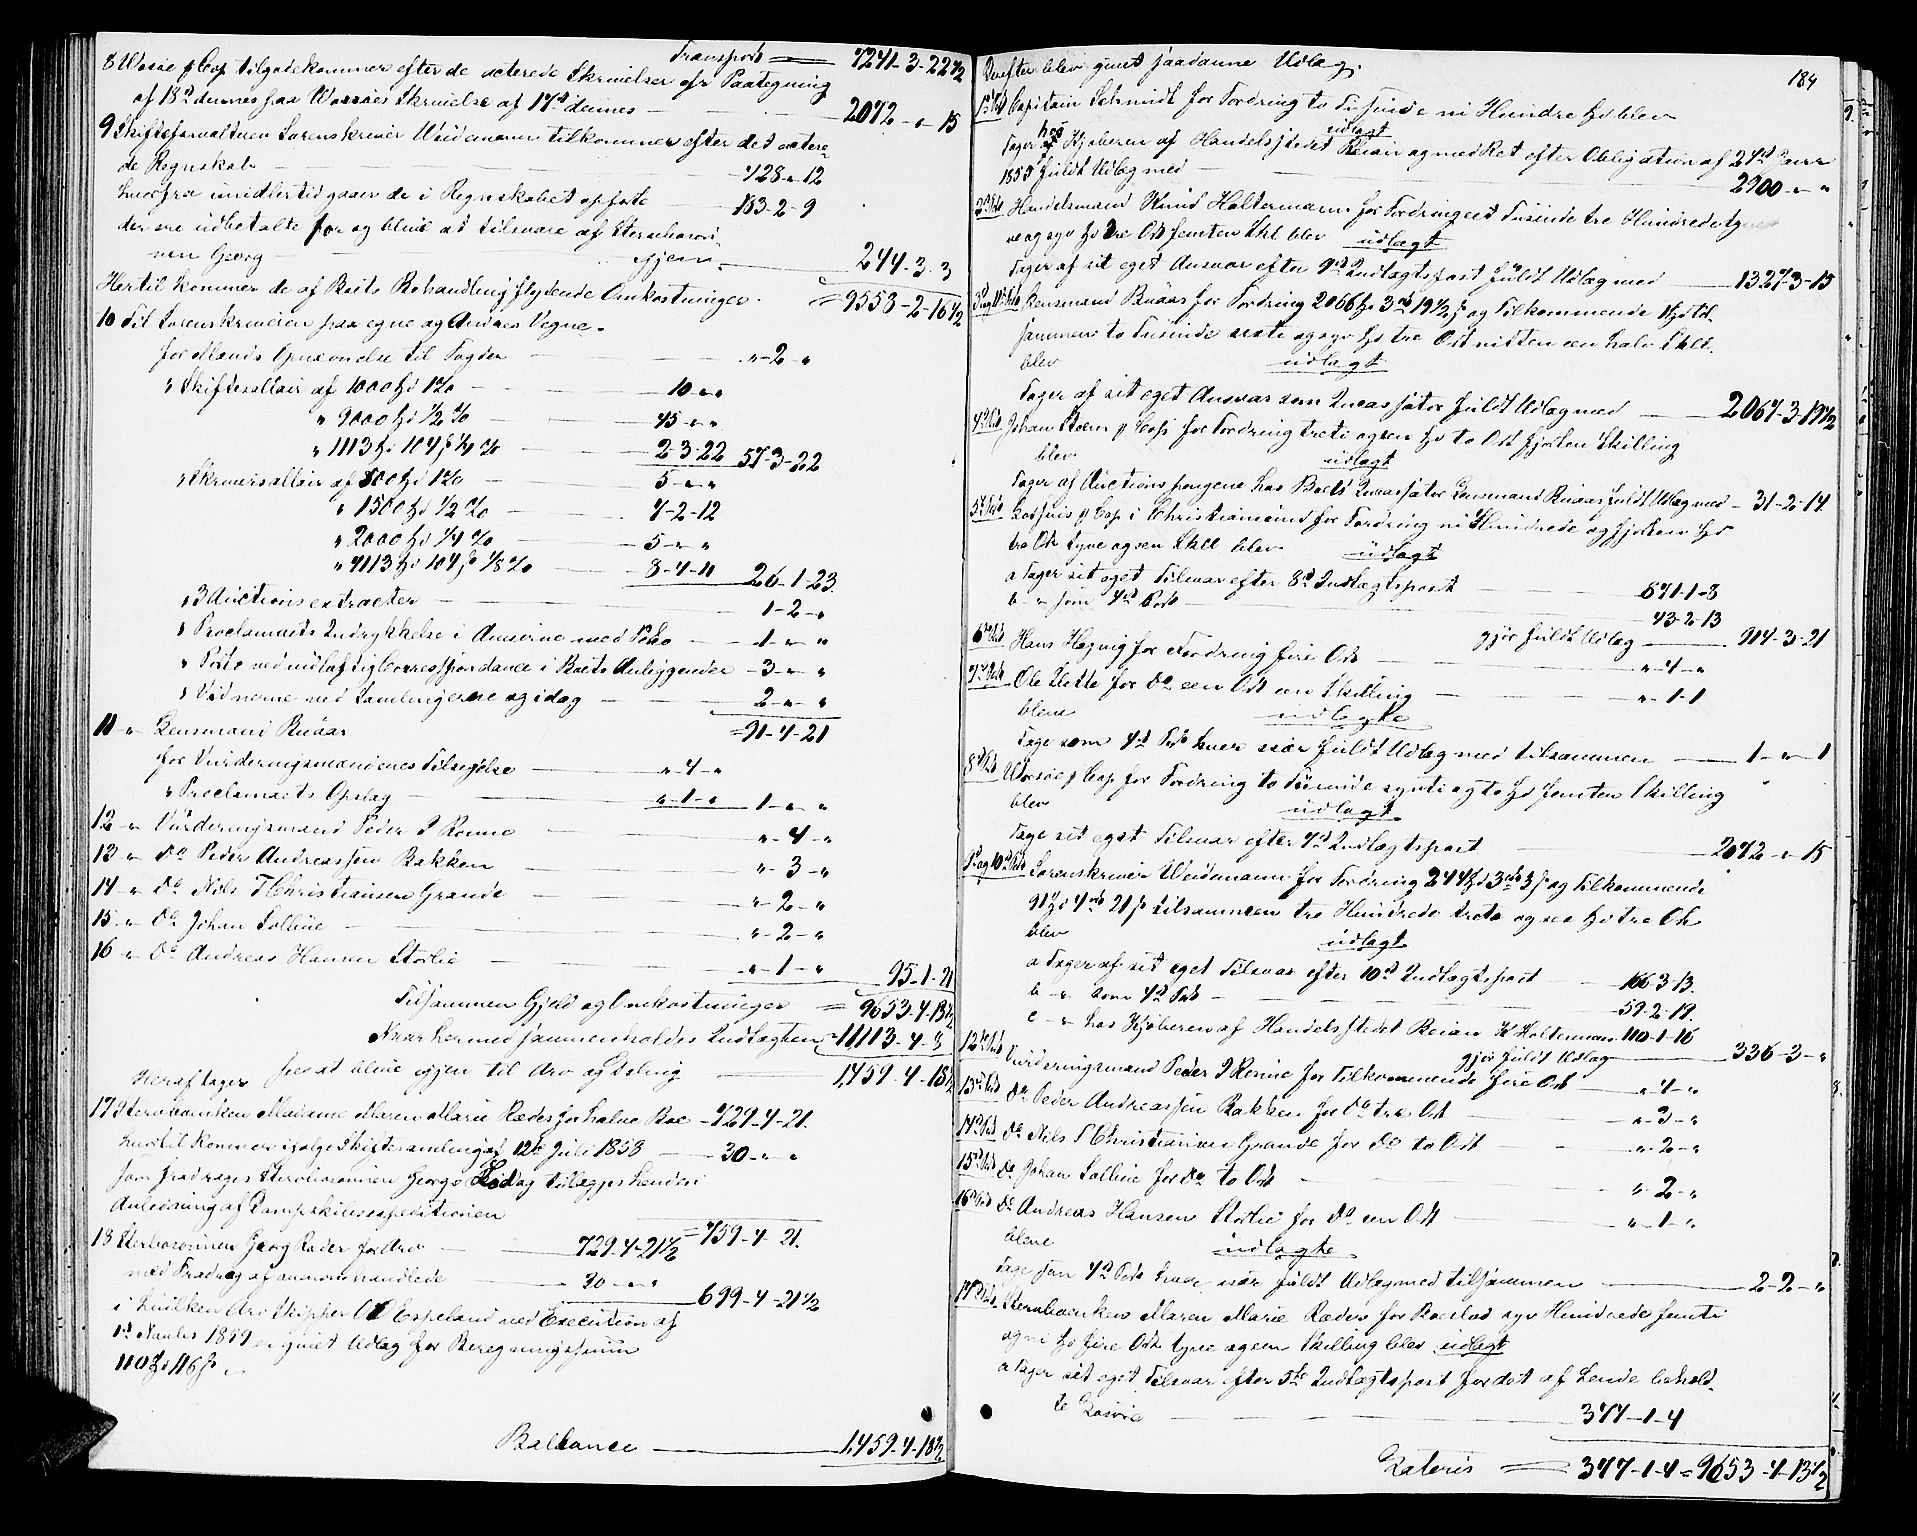 Transport = 7241-3-22½
8 Worsøe & Cop tilgodekommer efter de acterede Skrivelser efr Paategning
af 18de dennes paa Worsøes Skrivelse af 17de dennes — 2072 - " - 15
9 Skifteforvalteren Sorenskriver Weidemann tilkommer efter det actere-
de Regnskab — 428 - " - 12
hvorfra imidlertid gaaer de i Regnskabet opførte — 183-2-9
der ere udbetalte for og blive at tilsvare af Sterbosøn-
nen Georg — igjen — 244-3-3
Hertil kommer de af Boets Behandling flydende Omkostninger = 9558-2-16½
10 Til Sorenskriveren paa egne og Andres Vegne.
for Mænds Opnævnelse til Fogden — " - 2 - "
" Skiftesallair af 1000 Spd 1% — 10 - " - "
" 9000 Spd ½ % — 45 - " - "
" 1113 Spd 104 s ¼ % — 2-3-22 57-3-22
" Skriversallair af 500 Spd 1% — 5 - " - "
" 1500 Spd ½ % — 7-2-12
" 2000 Spd ¼ % — 5 - " - "
" 7113 Spd 104 s ⅛ % — 8-4-11 26-1-23
" 3 Auctionsextracter — 1-2- "
" Proclamaets Indrykkelse i Aviserne med Porto — 1 - " - "
" Porto ved vidløftig Correspondance i Boets Anliggender — 3 - " - "
" Vidnerne ved Samlingerne og idag — 2 - " - "
11 - " Lensmand Buaas = 91-4-21
for Vurderingsmændenes Tilsigelse — " - 4 - "
" Proclamaets Opslag — " - 1 - " 1 - " - "
12 - " Vurderingsmand Peder J Ronne — " - 4 - "
13 - " Do Peder Andreassen Bakken — " - 3 - "
14 - " Do Nils T Christiansen Grande — " - 2 - "
15 - " Do Johan Sollie — " - 2 - "
16 - " Do Andreas Hansen Storlie — " - 1 - " 95-1-21
Tilsammen Gjeld og Omkostninger = 9653-4-13½
Naar hermed sammenholdes Indtægten = 11113-4-8
sees at blive igjen til Arv og Deling — 1,459-4-18½
Heraf tager
17 Sterboenken Madame Maren Marie Ræder for halve Boe — 729-4-21.
hvortil kommer ifølge Skiftesamling af 12te Juli 1858 — 30 - " - "
som fradrages Sterbosønnen Georgs Lod og tillægges hende i
Anledning af Dampskibsexpeditionen
= 759-4-21.
18 Sterbosønnen Georg Ræder for Arv — 729-4-21½
med Fradrag af ovenomhandlede — 30 - " - " 699-4-21½
i hvilken Arv Skipper O L Espeland ved Execution af
1ste Novbr 1859 er givet Udlæg for Beregningssum
110 Spd 116 s. "
Ballance — 1,459-4-18½
184
Derefter blev givet saadanne Udlæg.
1ste Post Capitain Schmidt for Fordring to Tusinde ni Hundre Spd blev
udlagt
Tager hos Kjøberen af Handelsstedet Beian og med Ret efter Obligation af 24de Janr
1855 fuldt Udlæg med — 2900 - " - "
2den Post Handelsmand Knud Holtermann for Fordring eet Tusinde tre Hundrede tyve
og syv Spd tre Ort femten Skl blev udlagt
Tager af sit eget Ansvar efter 9de Indtægtspost fuldt Udlæg med — 1327-3-15
3die og 11te Post Lensmand Buaas for Fordring 2066 Spd 3 ort 19½ s og Tilkommende 1 Spd til-
sammen to Tusinde sexti og syv Spd tre Ort nitten en halv Skl.
blev udlagt
Tager af sit eget Ansvar som Incassator fuldt Udlæg med — 2067-3-19½
4de Post Johan Ream & Cop for Fordring treti og een Spd to Ort fjorten Skilling
blev udlagt
Tager af Auctionspengene hos Boets Incassator Lensmand Buaas fuldt Udlæg med — 31-2-14
5te Post & Cop i Christianssund for Fordring ni Hundrede og fjorten Spd
tre Ort tyve og een Skll blev udlagt
a Tager sit eget Tilsvar efter 8de Indtægtspost — 871-1-8
b - " som 4de Post — 43-2-13
gjør fuldt Udlæg — 914-3-21
6te Post Hans Høgvig for Fordring fire Ort — " - 4 - "
7de Post Ole Slette for Do een Ort een Skilling — " - 1 - 1
bleve udlagte
Tage som 4de Post hver især fuldt Udlæg med tilsammen — 1 - " - 1
8de Post Worsøe & Cop for Fordring to Tusinde sytti og to Spd femten Skilling
blev udlagt
Tage sit eget Tilsvar efter 7de Indtægtspost — 2072 - " - 15
9de og 10de Post Sorenskriver Weidemann for Fordring 244 Spd 3 ort 3 s og Tilkommende
91 Spd 4 ort 21 s tilsammen tre Hundrede treti og sex Spd tre Ort
blev udlagt
a Tager af sit eget Tilsvar efter 10de Indtægtspost — 166-3-13.
b - " som 4de Post — 59-2-19.
c - " hos Kjøberen af Handelsstedet Beian K Holtermann 110-1-16
gjør fuldt Udlæg — 336-3- "
12te Post Vurderingsmand Peder J Ronne for Tilkommende fire Ort — " - 4 - "
13de Post Do Peder Andreassen Bakken for Do tre Ort — " - 3 - "
14de Post Do Nils T Christiansen Grande for Do to Ort — " - 2 - "
15de Post Do Johan Sollie for Do to Ort — " - 2 - "
16de Post Do Andreas Hansen Storlie for Do een Ort — " - 1 - "
bleve udlagte
Tage som 4de Post hver især fuldt Udlæg med tilsammen — 2-2- "
17de Post Sterboenken Maren Marie Ræder for Boeslod syv Hundrede femti
og ni Spd fire Ort tyve og een Skilling blev udlagt
a Tager sit eget Tilsvar efter 5te Indtægtspost for det af hende behold-
te Løsøre — 377-1-4
Lateris = 377-1-4 = 9653-4-13½